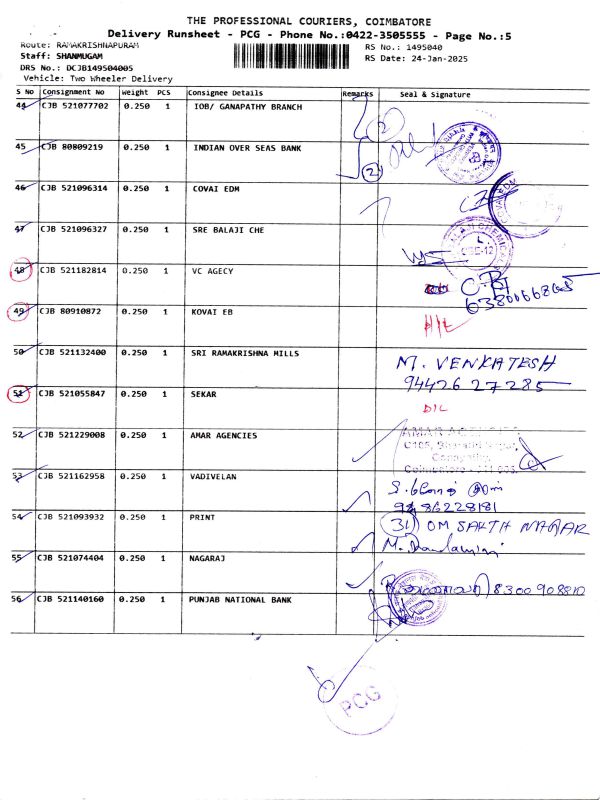 THE PROFESSIONAL COURIERS, COIMBATORE
Delivery Runsheet - PCG - Phone No.:0422-3505555 - Page No.:5
Route: RAMAKRISHNAPURAM
RS No.: 1495040
Staff: SHANMUGAM
RS Date: 24-Jan-2025
DRS No.: DCJB149504005
Vehicle: Two Wheeler Delivery
S No Consignment No Weight PCS Consignee Details Remarks Seal & Signature
44 CJB 521077702 0.250 1 IOB/ GANAPATHY BRANCH 2
45 CJB 80809219 0.250 1 INDIAN OVER SEAS BANK 2
46 CJB 521096314 0.250 1 COVAI EDM
47 CJB 521096327 0.250 1 SRE BALAJI CHE
48 CJB 521182814 0.250 1 VC AGECY
49 CJB 80910872 0.250 1 KOVAI EB
50 CJB 521132400 0.250 1 SRI RAMAKRISHNA MILLS M. VENKATESH
9442627285
51 CJB 521055847 0.250 1 SEKAR D/L
52 CJB 521229008 0.250 1 AMAR AGENCIES AMAR AGENCIES
53 CJB 521162958 0.250 1 VADIVELAN
9486228181
54 CJB 521093932 0.250 1 PRINT 31 OM SAKTH NAGAR
55 CJB 521074404 0.250 1 NAGARAJ
8300908810
56 CJB 521140160 0.250 1 PUNJAB NATIONAL BANK
PCG